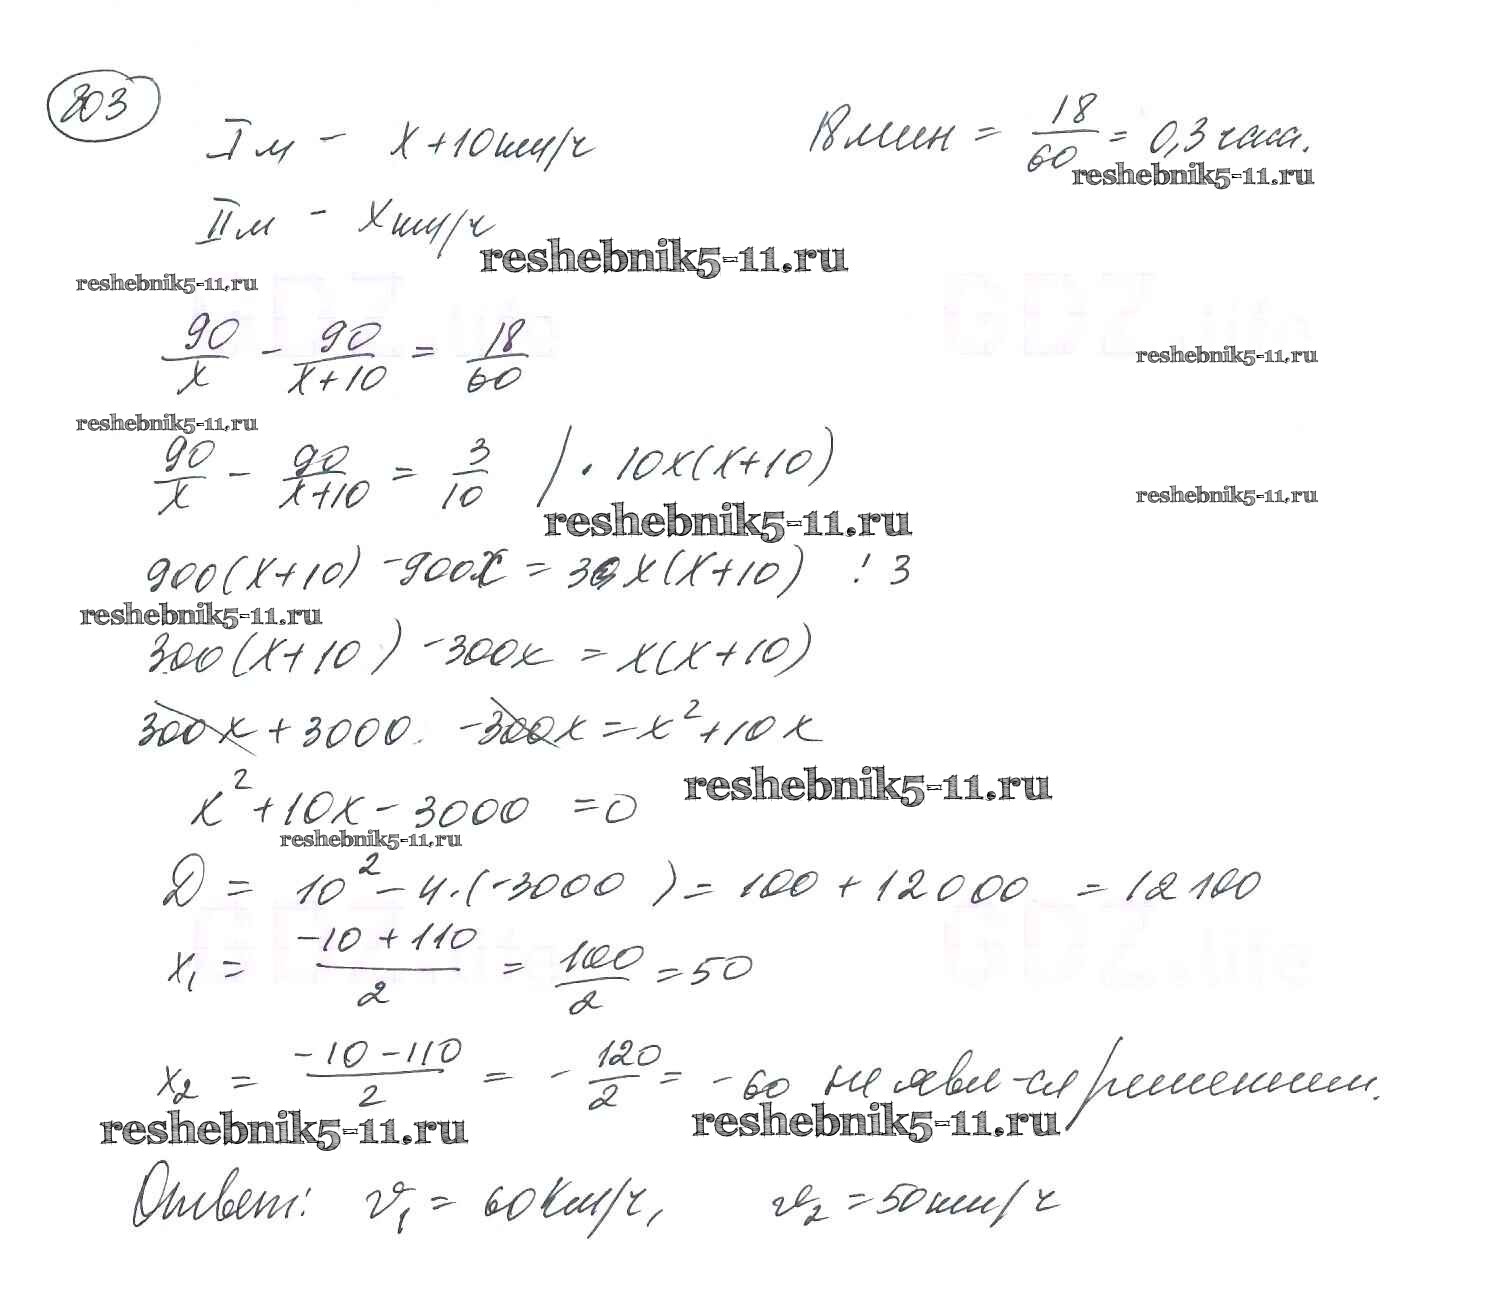 803
I м - x+10 км/ч 18 мин = 18/60 = 0,3 часа.
reshebnik5-11.ru
II м - x км/ч
reshebnik5-11.ru
reshebnik5-11.ru
GDZ.life GDZ.life
90/x - 90/(x+10) = 18/60
reshebnik5-11.ru
reshebnik5-11.ru
90/x - 90/(x+10) = 3/10 | · 10x(x+10)
reshebnik5-11.ru
reshebnik5-11.ru
900(x+10) - 900x = 3x(x+10) : 3
reshebnik5-11.ru
300(x+10) - 300x = x(x+10)
300x + 3000 - 300x = x² + 10x
reshebnik5-11.ru
x² + 10x - 3000 = 0
reshebnik5-11.ru
D = 10² - 4·(-3000) = 100 + 12000 = 12100
GDZ.life GDZ.life
x₁ = (-10 + 110)/2 = 100/2 = 50
x₂ = (-10 - 110)/2 = -120/2 = -60 не явл-ся решением.
reshebnik5-11.ru reshebnik5-11.ru
Ответ: v₁ = 60 км/ч, v₂ = 50 км/ч